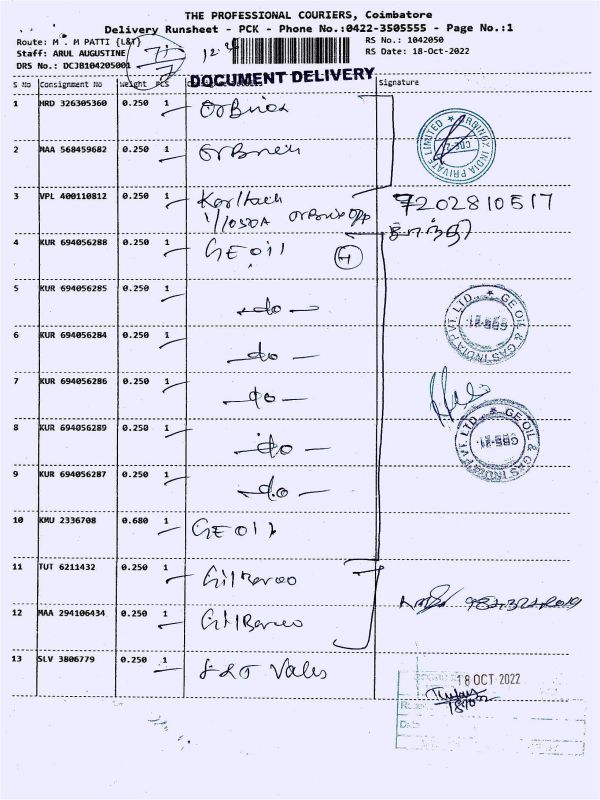 THE PROFESSIONAL COURIERS, Coimbatore
Delivery Runsheet - PCK - Phone No.:0422-3505555 - Page No.:1
Route: M . M PATTI {L&T} RS No.: 1042050
Staff: ARUL AUGUSTINE RS Date: 18-Oct-2022
DRS No.: DCJB104205001
DOCUMENT DELIVERY
S No Consignment No Weight PCS Signature
1 HRD 326305360 0.250 1
2 MAA 568459682 0.250 1
3 VPL 400110812 0.250 1
7202810517
4 KUR 694056288 0.250 1 GE Oil
5 KUR 694056285 0.250 1 - do -
6 KUR 694056284 0.250 1 - do -
7 KUR 694056286 0.250 1 - do -
8 KUR 694056289 0.250 1 - do -
9 KUR 694056287 0.250 1 - do -
10 KMU 2336708 0.680 1 GE Oil
11 TUT 6211432 0.250 1 Gilbarco
12 MAA 294106434 0.250 1 Gilbarco
13 SLV 3806779 0.250 1
PRIVATE LIMITED
INDIA
GE OIL & GAS INDIA PVT. LTD.
GE OIL & GAS INDIA PVT. LTD.
18 OCT 2022
Date